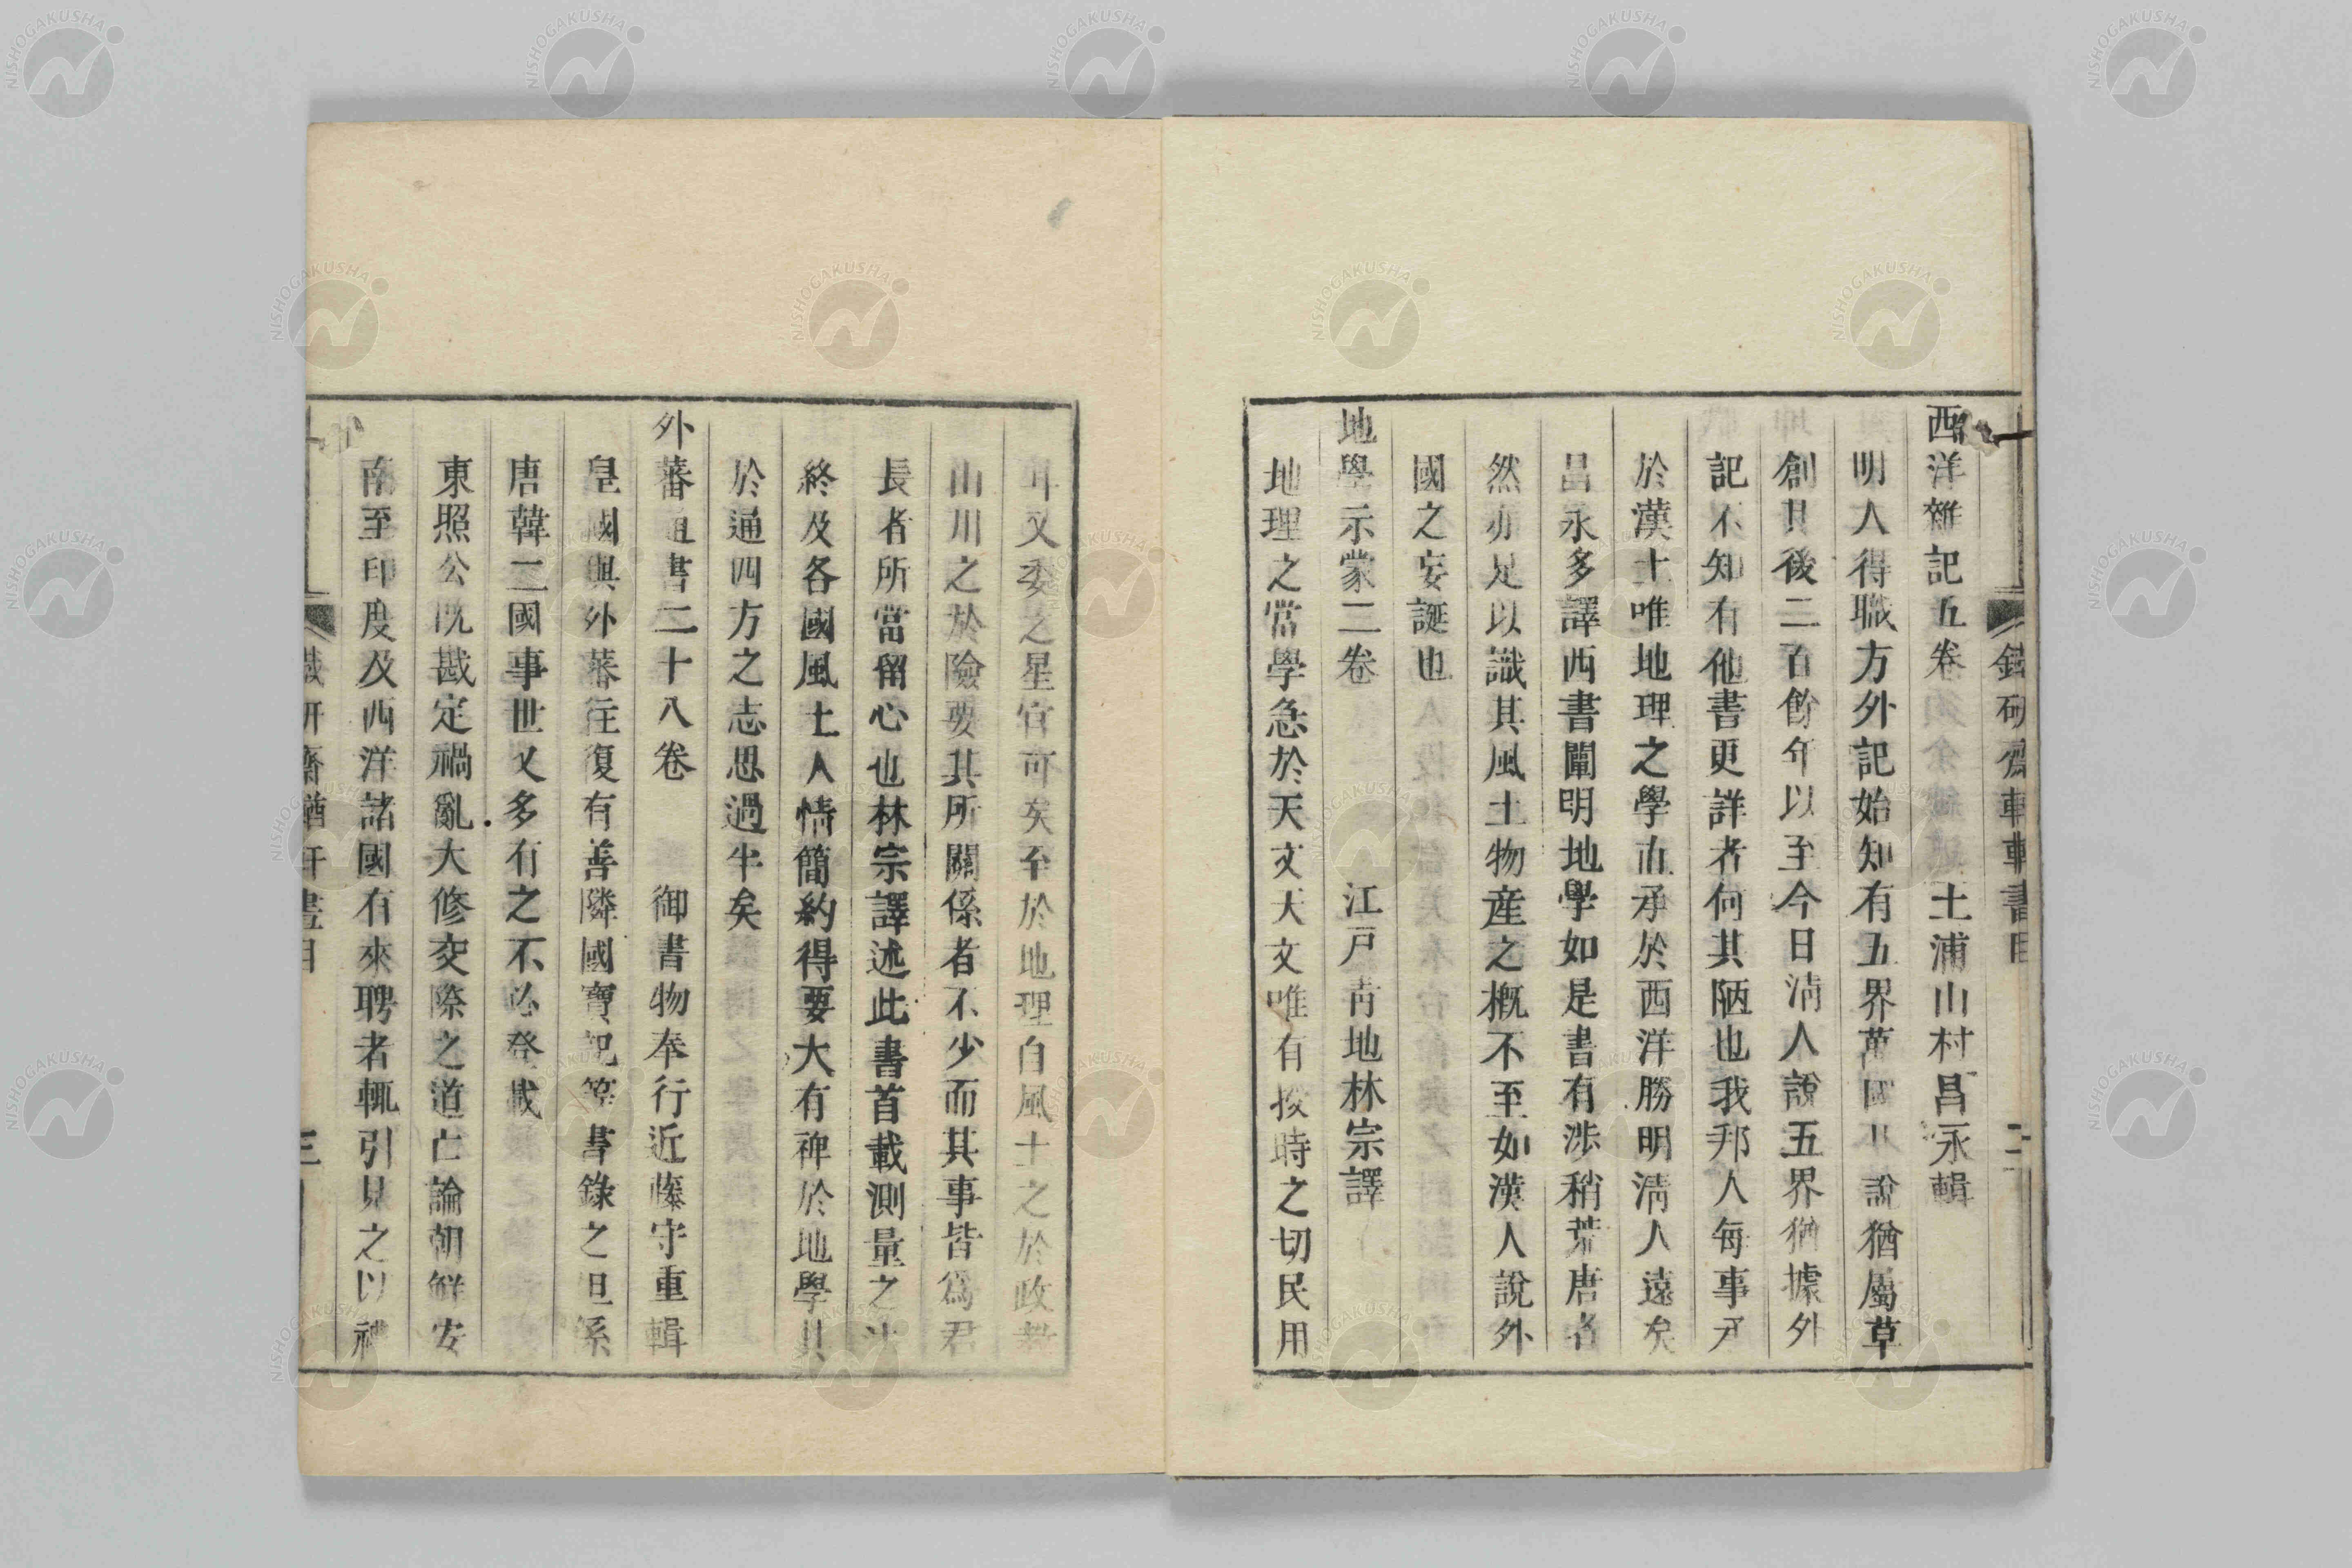 西洋雜記五卷 土浦山村昌永輯
明人得職方外記始知有五界萬國其說猶屬草
創其後二百餘年以至今日淸人說五界猶據外
記不知有他書更詳者何其陋也我邦人每事
於漢土唯地理之學而承於西洋勝明淸人遠矣
昌永多譯西書闡明地學如是書有涉稍荒唐者
然亦足以識其風土物産之槪不至如漢人說外
國之妄誕也
地學示蒙二卷 江戸靑地林宗譯
地理之當學急於天文天文唯有授時之切民用
耳又委之星官可矣至於地理自風土之於政
山川之於險要其所關係者不少而其事皆爲君
長者所當留心也林宗譯述此書首載測量之法
終及各國風土人情簡約得要大有裨於地學其
於通四方之志思過半矣
外蕃通書二十八卷 御書物奉行近藤守重輯
皇國與外蕃往復有善隣國寶記等書錄之但係
唐韓二國事世又多有之不必登載
東照公既戡定禍亂大修交際之道亡論朝鮮安
南至印度及西洋諸國有來聘者輒引見之以禮
鐵研齋輶軒書目 二
鐵研齋輶軒書目 三
NISHOGAKUSHA